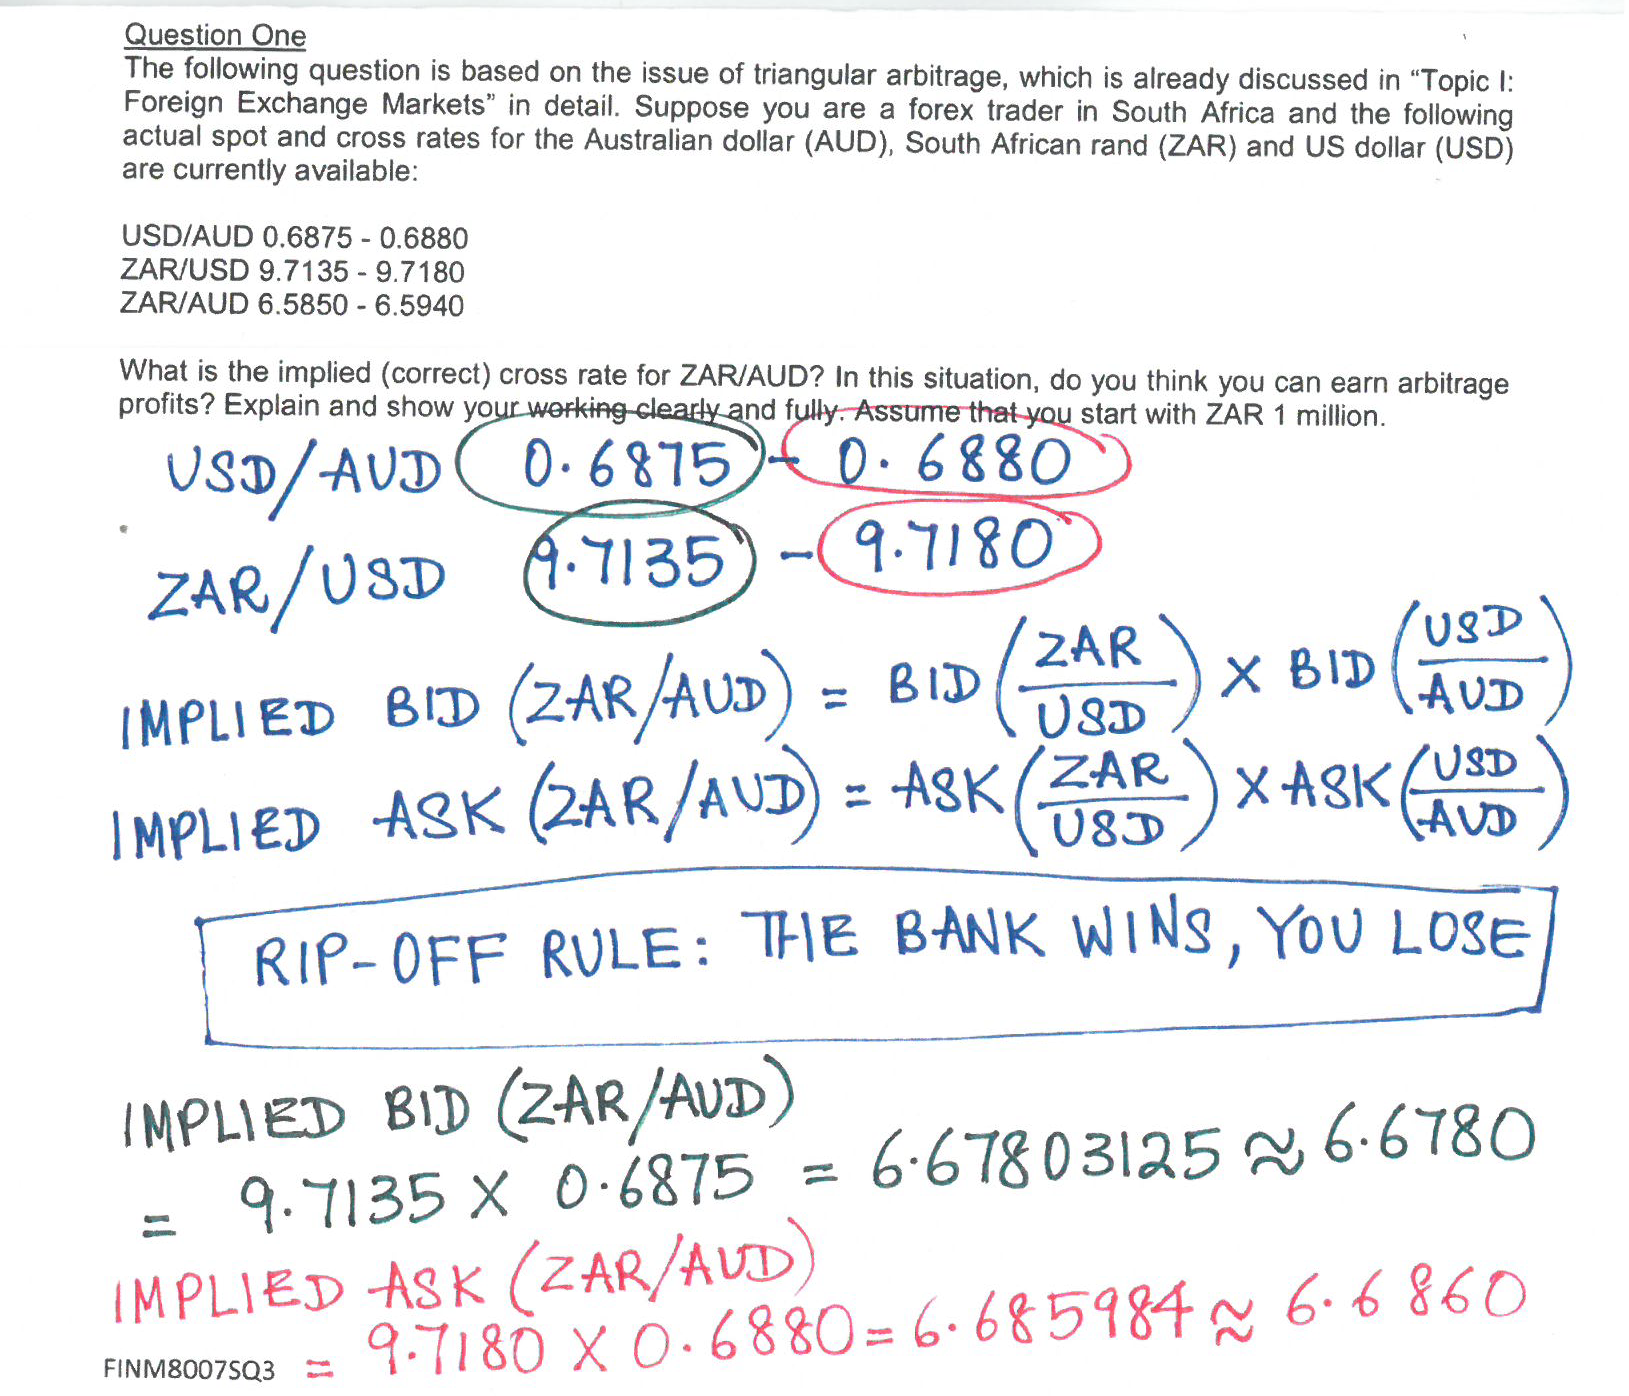 Question One
The following question is based on the issue of triangular arbitrage, which is already discussed in “Topic I:
Foreign Exchange Markets” in detail. Suppose you are a forex trader in South Africa and the following
actual spot and cross rates for the Australian dollar (AUD), South African rand (ZAR) and US dollar (USD)
are currently available:
USD/AUD 0.6875 - 0.6880
ZAR/USD 9.7135 - 9.7180
ZAR/AUD 6.5850 - 6.5940
What is the implied (correct) cross rate for ZAR/AUD? In this situation, do you think you can earn arbitrage
profits? Explain and show your working clearly and fully. Assume that you start with ZAR 1 million.
USD/AUD 0.6875 - 0.6880
ZAR/USD 9.7135 - 9.7180
IMPLIED BID (ZAR/AUD) = BID (ZAR/USD) X BID (USD/AUD)
IMPLIED ASK (ZAR/AUD) = ASK (ZAR/USD) X ASK (USD/AUD)
RIP-OFF RULE: THE BANK WINS, YOU LOSE
IMPLIED BID (ZAR/AUD)
= 9.7135 X 0.6875 = 6.67803125 ≈ 6.6780
IMPLIED ASK (ZAR/AUD)
= 9.7180 X 0.6880 = 6.685984 ≈ 6.6860
FINM8007SQ3